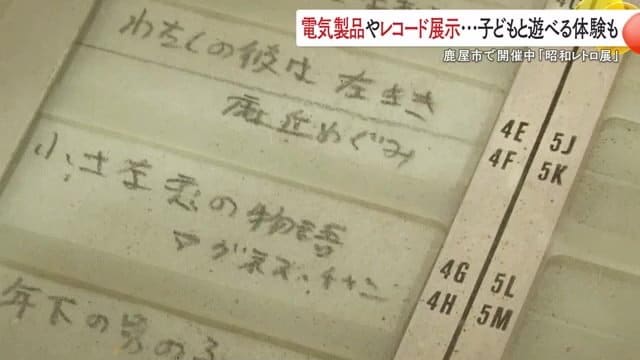 電気製品やレコード展示…子どもと遊べる体験も
鹿屋市で開催中「昭和レトロ展」
わたしの彼は 左きき
麻丘めぐみ
小さな恋の物語
アグネス・チャン
年下の男の子
4E
4F
5J
5K
4G
4H
5L
5M